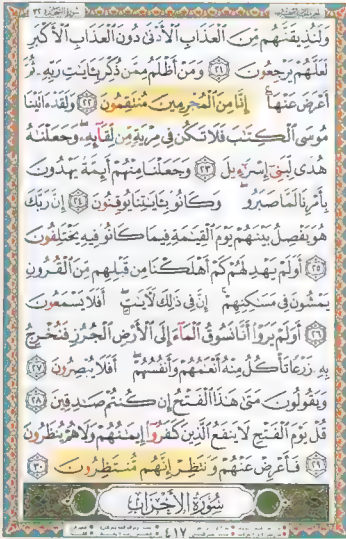 وَلَنُذِيقَنَّهُم مِّنَ ٱلْعَذَابِ ٱلْأَدْنَىٰ دُونَ ٱلْعَذَابِ ٱلْأَكْبَرِ
لَعَلَّهُمْ يَرْجِعُونَ ٢١ وَمَنْ أَظْلَمُ مِمَّن ذُكِّرَ بِـَٔايَٰتِ رَبِّهِۦ ثُمَّ
أَعْرَضَ عَنْهَآ إِنَّا مِنَ ٱلْمُجْرِمِينَ مُنتَقِمُونَ ٢٢ وَلَقَدْ ءَاتَيْنَا
مُوسَى ٱلْكِتَٰبَ فَلَا تَكُن فِى مِرْيَةٍ مِّن لِّقَآئِهِۦ وَجَعَلْنَٰهُ
هُدًى لِّبَنِىٓ إِسْرَٰٓءِيلَ ٢٣ وَجَعَلْنَا مِنْهُمْ أَئِمَّةً يَهْدُونَ
بِأَمْرِنَا لَمَّا صَبَرُوا۟ وَكَانُوا۟ بِـَٔايَٰتِنَا يُوقِنُونَ ٢٤ إِنَّ رَبَّكَ
هُوَ يَفْصِلُ بَيْنَهُمْ يَوْمَ ٱلْقِيَٰمَةِ فِيمَا كَانُوا۟ فِيهِ يَخْتَلِفُونَ
٢٥ أَوَلَمْ يَهْدِ لَهُمْ كَمْ أَهْلَكْنَا مِن قَبْلِهِم مِّنَ ٱلْقُرُونِ
يَمْشُونَ فِى مَسَٰكِنِهِمْ إِنَّ فِى ذَٰلِكَ لَـَٔايَٰتٍ أَفَلَا يَسْمَعُونَ
٢٦ أَوَلَمْ يَرَوْا۟ أَنَّا نَسُوقُ ٱلْمَآءَ إِلَى ٱلْأَرْضِ ٱلْجُرُزِ فَنُخْرِجُ
بِهِۦ زَرْعًا تَأْكُلُ مِنْهُ أَنْعَٰمُهُمْ وَأَنفُسُهُمْ أَفَلَا يُبْصِرُونَ ٢٧
وَيَقُولُونَ مَتَىٰ هَٰذَا ٱلْفَتْحُ إِن كُنتُمْ صَٰدِقِينَ ٢٨
قُلْ يَوْمَ ٱلْفَتْحِ لَا يَنفَعُ ٱلَّذِينَ كَفَرُوٓا۟ إِيمَٰنُهُمْ وَلَا هُمْ يُنظَرُونَ
٢٩ فَأَعْرِضْ عَنْهُمْ وَٱنتَظِرْ إِنَّهُم مُّنتَظِرُونَ ٣٠
سُورَةُ الأَحْزَابِ
٤١٧